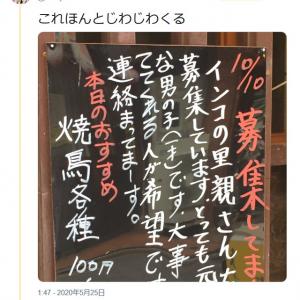 これほんとじわじわくる
10/10 募集してま
インコの里親さんを
募集しています。とっても元
な男の子(キ)です。大事
ててくれる人が希望で
連絡まってまーす。
本日のおすすめ
焼鳥各種 100円
1:47 - 2020年5月25日